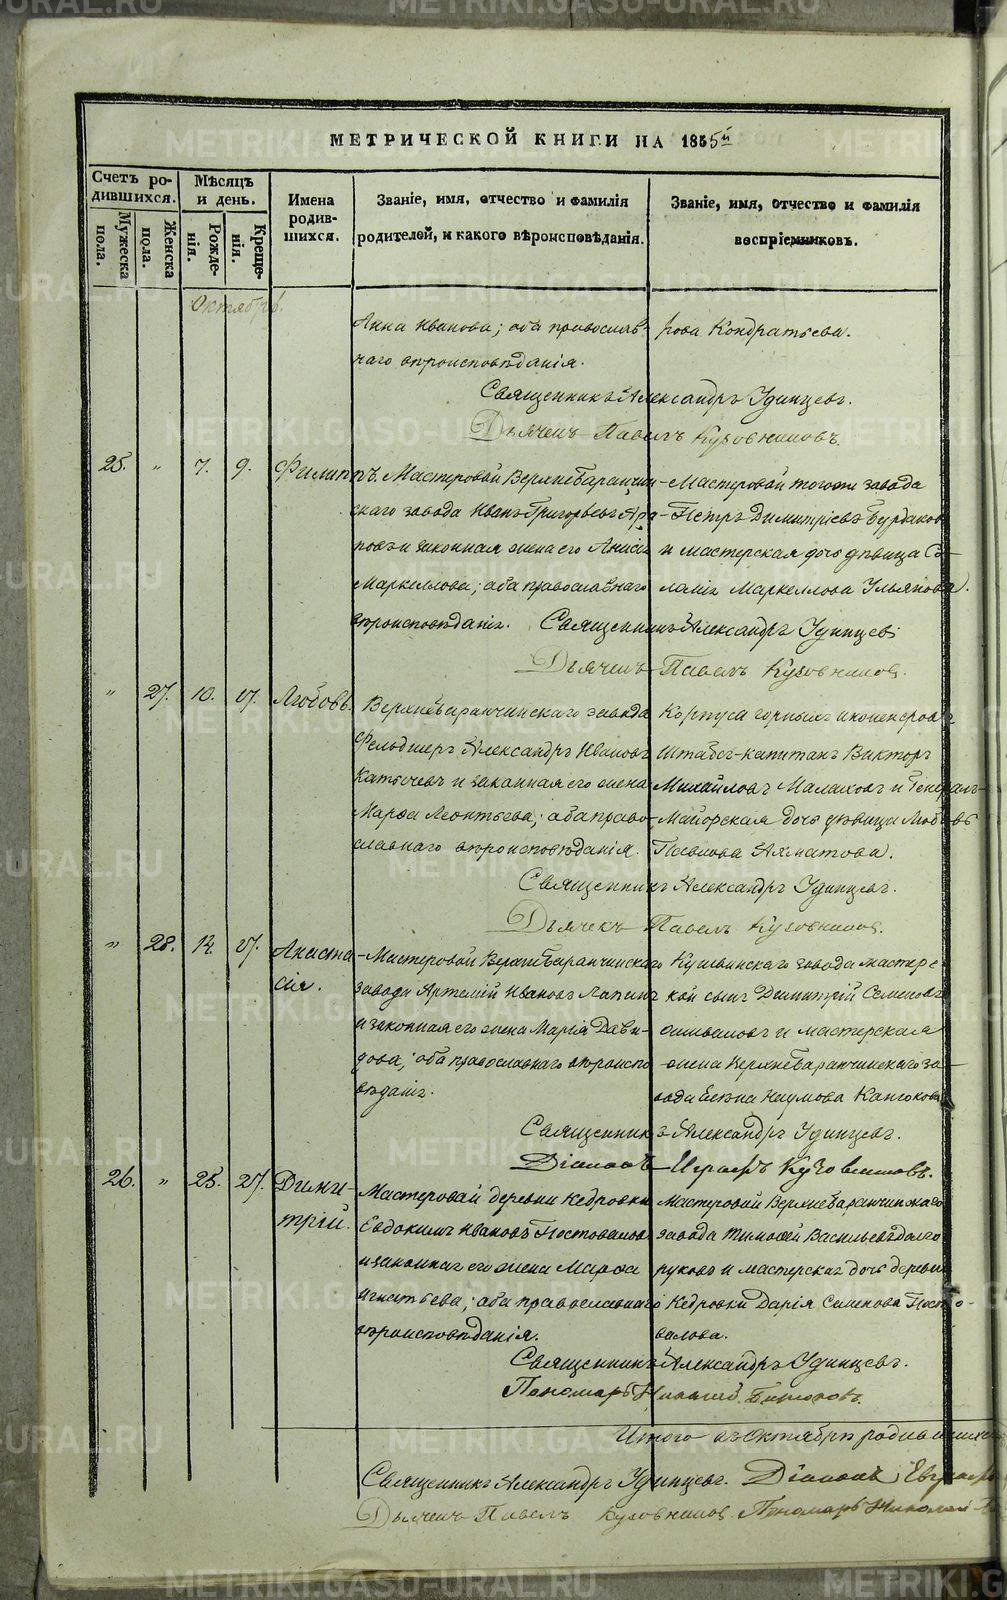 METRIKI.GASO-URAL.RU
МЕТРИЧЕСКОЙ КНИГИ НА 1855й
Счетъ ро-
дившихся.
Мужеска пола.
Женска пола.
Мѣсяцъ
и день.
Рожде-
нія.
Креще-
нія.
Имена
родив-
шихся.
Званіе, имя, отчество и фамилія
родителей, и какого вѣроисповѣданія.
Званіе, имя, отчество и фамилія
воспріемниковъ.
Октябрь.
Анна Иванова; оба православ- рова Кондратьева.
наго вѣроисповѣданія.
Священникъ Александръ Удинцевъ.
Дьячекъ Павелъ Кузовниковъ.
25. " 7. 9. Филиппъ. Мастеровой Верхнебаранчин- Мастеровой тогоже завода
скаго завода Иванъ Григорьевъ Петръ Димитріевъ Бурдаков
и законная жена его Анисія и мастерская дочь дѣвица Со-
Маркеллова; оба православнаго ломія Маркеллова Ульянова.
вѣроисповѣданія. Священникъ Александръ Удинцевъ
Дьячекъ Павелъ Кузовниковъ.
" 27. 10. 17. Любовь. Верхнебаранчинскаго завода Корпуса горныхъ инженеровъ
Фельдшеръ Александръ Ивановъ Штабсъ-капитанъ Викторъ
и законная его жена Михайловъ Малаховъ и Генералъ-
Марѳа Леонтьева; оба право- Майорская дочь дѣвица Любовь
славнаго вѣроисповѣданія. Павлова Ахматова.
Священникъ Александръ Удинцевъ.
Дьячекъ Павелъ Кузовниковъ.
" 28. 17. Анаста- Мастеровой Верхнебаранчинскаго Кушвинскаго завода мастерс
сія. завода Артемій Ивановъ Лапинъ кой сынъ Димитрій Семеновъ
и законная его жена Марія Дави- и мастерская
дова; оба православнаго вѣроиспо- жена Верхнебаранчинскаго за-
вѣданія. вода Елена Наумова
Священникъ Александръ Удинцевъ.
Діаконъ Кузовниковъ.
26. " 25. 27. Дими- Мастеровой деревни Кедровки Мастеровой Верхнебаранчинскаго
трій. Евдокимъ Ивановъ Постоваловъ завода Тимоѳей Васильевъ Долго
и законная его жена Марѳа руковъ и мастерская дочь деревни
Игнатьева; оба православнаго Кедровки Дарія Семенова Посто-
вѣроисповѣданія. валова.
Священникъ Александръ Удинцевъ.
Пономарь Николай
Итого въ Октябрѣ родившихся
Священникъ Александръ Удинцевъ. Діаконъ
Дьячекъ Павелъ Кузовниковъ. Пономарь Николай